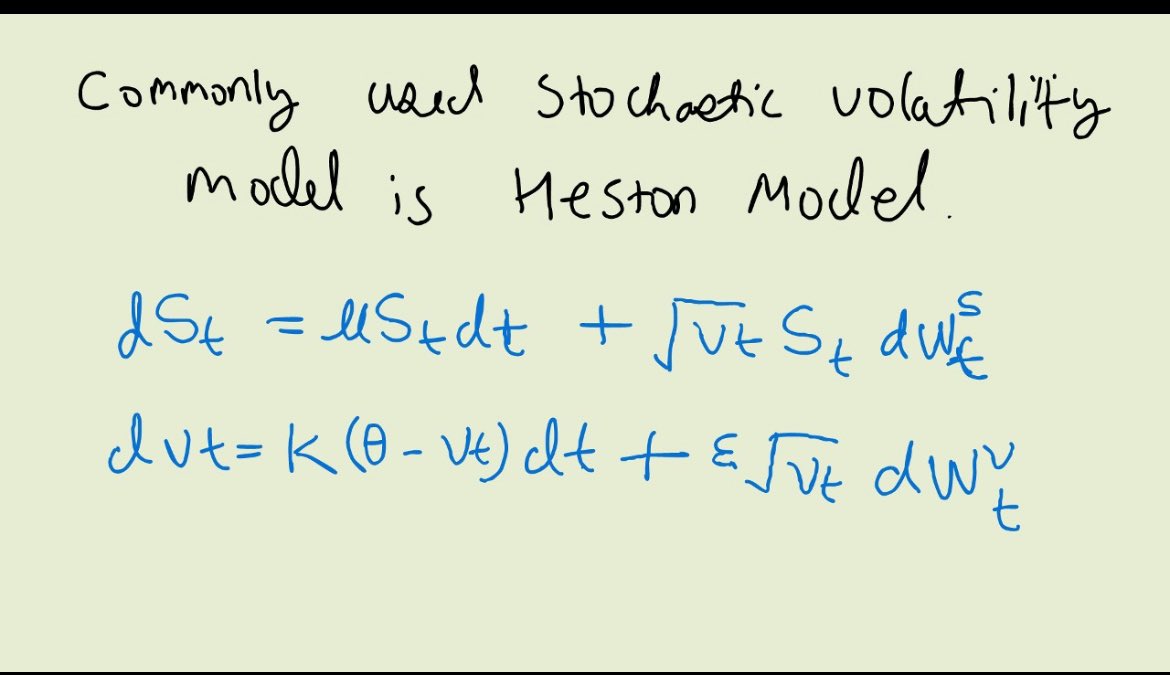 Commonly used stochastic volatility
model is Heston Model.
dSₜ = μSₜdt + √νₜ Sₜ dWₜˢ
dνₜ = κ(θ - νₜ)dt + ε√νₜ dWₜᵛ